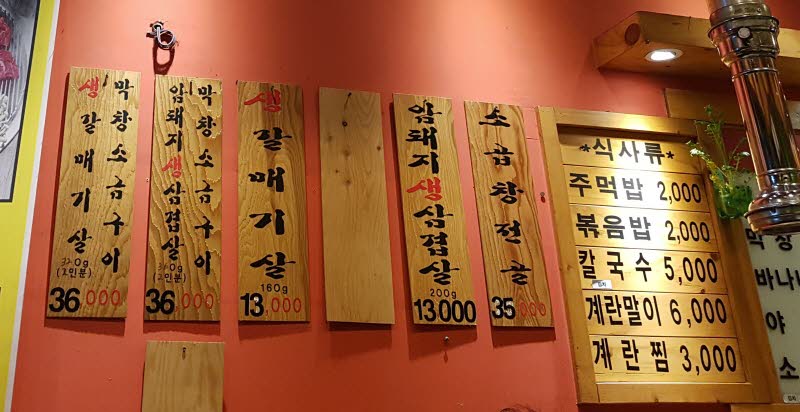 생갈매기살
막창소금구이
(2인분)
36,000
암돼지생삼겹살
막창소금구이
(2인분)
36,000
생갈매기살
160g
13,000
암돼지생삼겹살
200g
13,000
소곱창전골
35,000
*식사류*
주먹밥 2,000
볶음밥 2,000
칼국수 5,000
계란말이 6,000
계란찜 3,000
막창
바나나
야
소